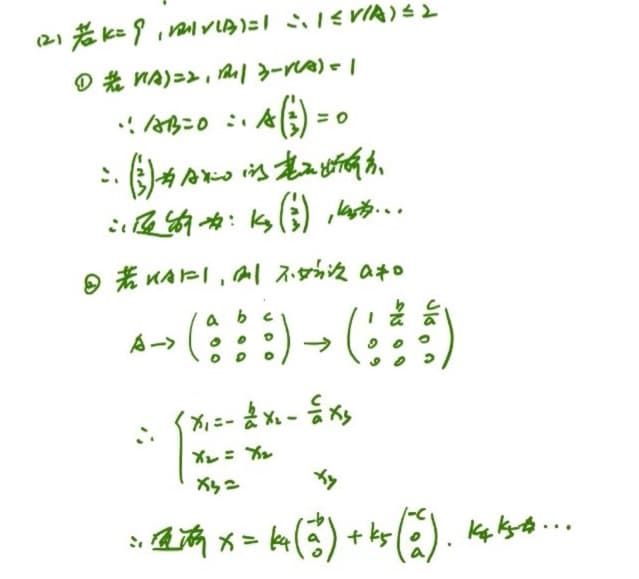 (2) 若k=9,则r(B)=1 ∴1≤r(A)≤2
① 若r(A)=2,则3-r(A)=1
∵AB=0 ∴A(1 2 3)=0
∴(1 2 3)为Ax=0的基础解系
∴通解为:k₃(1 2 3),k₃为…
② 若r(A)=1,则不妨设a≠0
A→(a b c
0 0 0
0 0 0)→(1 b/a c/a
0 0 0
0 0 0)
∴{x₁=-b/a x₂-c/a x₃
x₂=x₂
x₃= x₃
∴通解x=k₄(-b a 0)+k₅(-c 0 a).k₄k₅为…